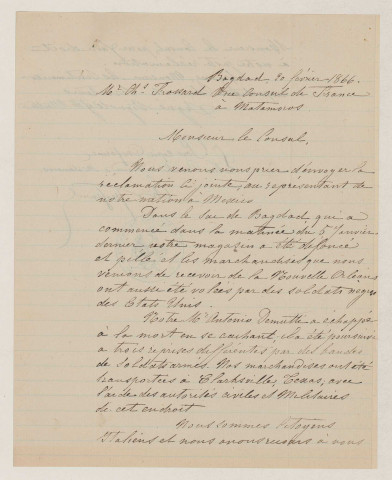 Bagdad 20 février 1866.
Mr. Chs. Trossard Vice Consul de France
à Matamoros
Monsieur le Consul,
Nous venons vous prier d'envoyer la
réclamation ci jointe, au représentant de
notre nation à Mexico
Dans le Sac de Bagdad, qui a
commencé dans la matinée du 5 Janvier
dernier notre magasin a été défoncé
et pillé, et les marchandises que nous
venions de recevoir de la Nouvelle Orléans
ont aussi été volées par des soldats nègres
des Etats Unis.
Notre Mr. Antonio a échappé
à la mort en se cachant, il a été poursuivi
a trois reprises différentes par des bandes
de soldats armés. Nos marchandises ont été
transportées à Clarksville, Texas, avec
l'aide des autorités civiles et Militaires
de cet endroit
Nous sommes Citoyens
Italiens et nous avons recours à vous